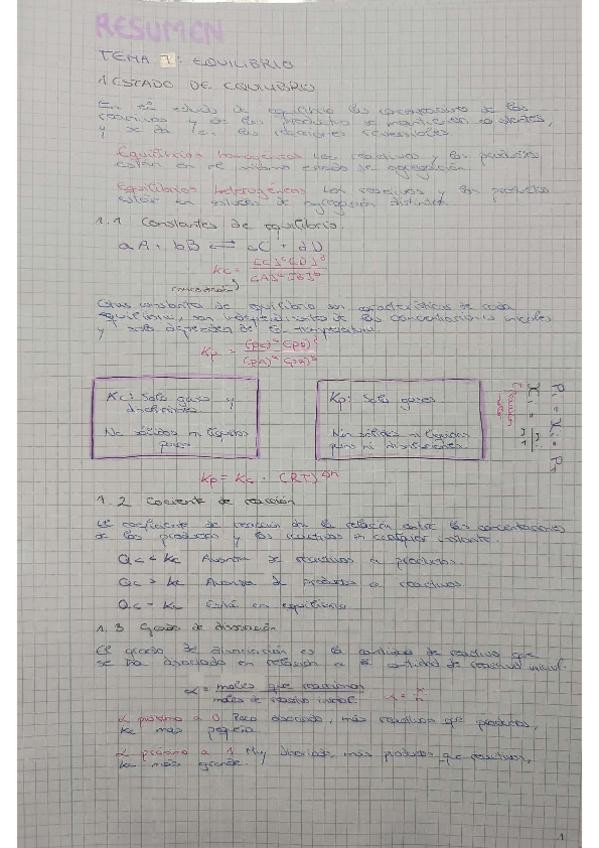 RESUMEN
TEMA 7: EQUILIBRIO
1 ESTADO DE EQUILIBRIO
En el estado de equilibrio las concentraciones de los
reactivos y de los productos se mantienen constantes,
y se da en las reacciones reversibles.
Equilibrios homogéneos Los reactivos y los productos
están en el mismo estado de agregación.
Equilibrios heterogéneos Los reactivos y los productos
están en de agregación distintos.
1.1 Constantes de equilibrio.
aA + bB ⇌ cC + dD
Kc = [C]^c [D]^d / [A]^a [B]^b
Las constantes de equilibrio son características de cada
equilibrio, son independientes de las concentraciones iniciales
y solo dependen de la temperatura
Kp = (pC)^c (pD)^d / (pA)^a (pB)^b
Kc: Solo gases y
disoluciones
No sólidos ni líquidos
puros
Kp: Solo gases
Ni sólidos ni líquidos
puros ni disoluciones
Pi = Xi · PT
Xi = ni / nT
Kp = Kc · (RT)^Δn
1.2 Cociente de reacción
El coeficiente de reacción da la relación entre las concentraciones
de los productos y los reactivos en cualquier instante.
Qc < Kc Avanza de reactivos a productos.
Qc > Kc Avanza de productos a reactivos
Qc = Kc Está en equilibrio
1.3 Grado de disociación
El grado de disociación es la cantidad de reactivo que
se ha disociado en relación a la cantidad de reactivo inicial.
α = moles que reaccionan / moles de reactivo inicial α = x/n
α próximo a 0 Poco disociado, más reactivos que productos,
Kc más pequeña
α próximo a 1 Muy disociado, más productos que reactivos,
Kc más grande.
1